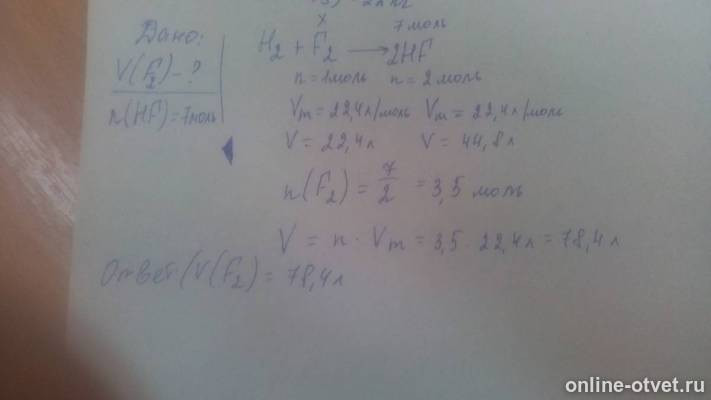 Дано:
V(F₂) - ?
n(HF) = 7моль
x 7 моль
H₂ + F₂ → 2HF
n = 1моль n = 2моль
Vm = 22,4л/моль Vm = 22,4л/моль
V = 22,4л V = 44,8л
n(F₂) = 7/2 = 3,5 моль
V = n · Vm = 3,5 · 22,4л = 78,4л
Ответ/V(F₂) = 78,4л
online-otvet.ru